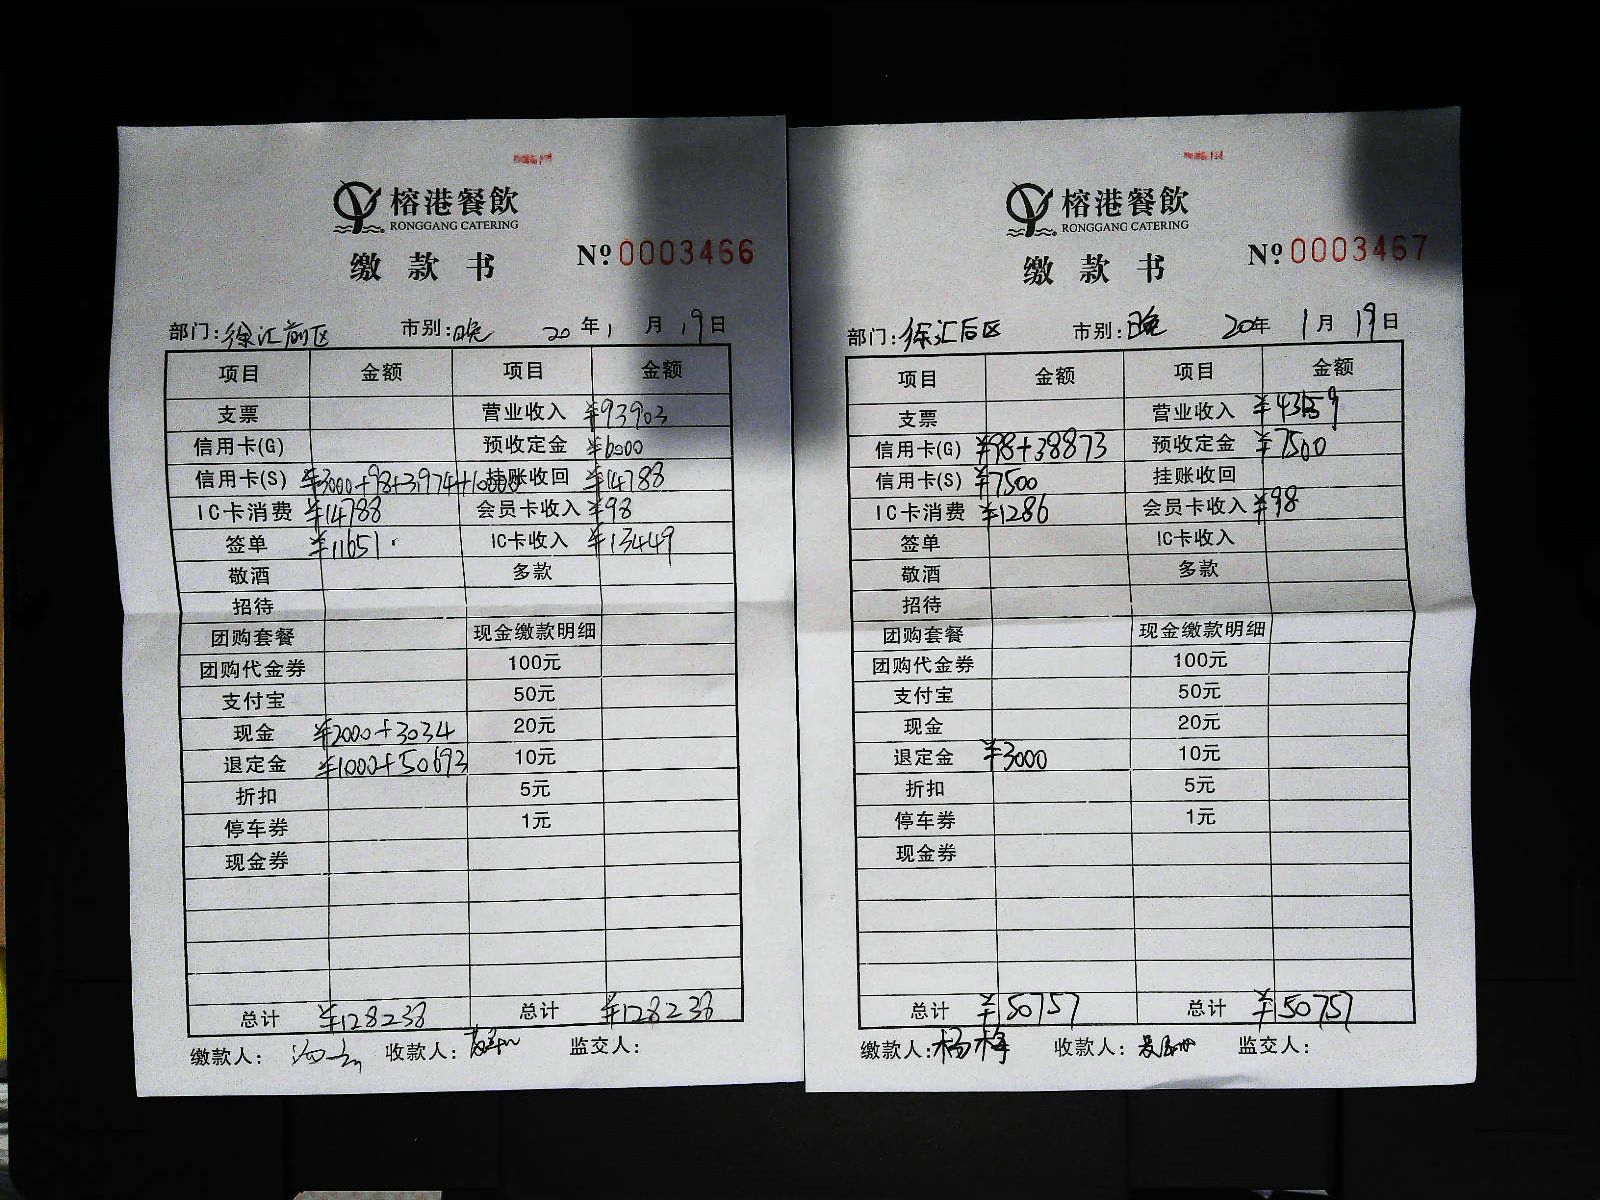 榕港餐飲
RONGGANG CATERING
缴款书 Nº 0003466
部门: 徐汇前区 市别: 晚 20年1月19日
项目 金额 项目 金额
支票 营业收入 ¥93903
信用卡(G) 预收定金 ¥6000
信用卡(S) ¥3000+98+31974+10000 挂账收回 ¥14788
IC卡消费 ¥14788 会员卡收入 ¥98
签单 ¥11651 IC卡收入 ¥13449
敬酒 多款
招待
团购套餐 现金缴款明细
团购代金券 100元
支付宝 50元
现金 ¥2000+3034 20元
退定金 ¥1000+50693 10元
折扣 5元
停车券 1元
现金券
总计 ¥128238 总计 ¥128238
缴款人: 收款人: 监交人:
榕港餐飲
RONGGANG CATERING
缴款书 Nº 0003467
部门: 徐汇后区 市别: 晚 20年1月19日
项目 金额 项目 金额
支票 营业收入 ¥43159
信用卡(G) ¥98+38873 预收定金 ¥7500
信用卡(S) ¥7500 挂账收回
IC卡消费 ¥1286 会员卡收入 ¥98
签单 IC卡收入
敬酒 多款
招待
团购套餐 现金缴款明细
团购代金券 100元
支付宝 50元
现金 20元
退定金 ¥3000 10元
折扣 5元
停车券 1元
现金券
总计 ¥50757 总计 ¥50757
缴款人: 杨梅 收款人: 监交人: